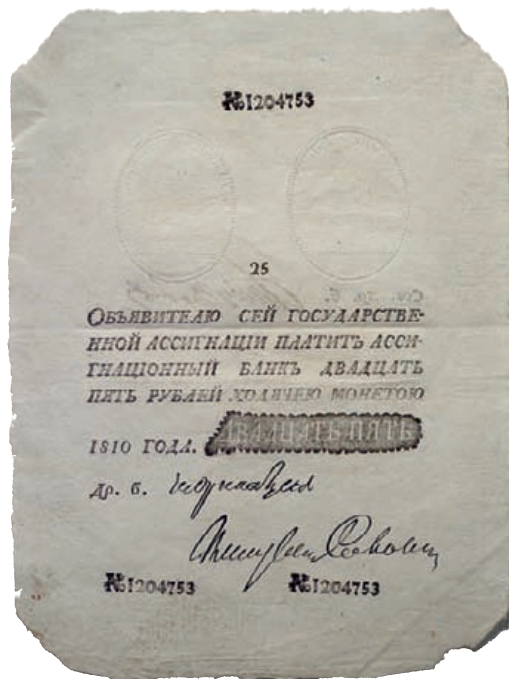 №1204753
25
ОБЪЯВИТЕЛЮ СЕЙ ГОСУДАРСТВЕ-
ННОЙ АССИГНАЦІИ ПЛАТИТЪ АССИ-
ГНАЦІОННЫЙ БАНКЪ ДВАДЦАТЬ
ПЯТЬ РУБЛЕЙ ХОДЯЧЕЮ МОНЕТОЮ
1810 ГОДА. ДВАДЦАТЬ ПЯТЬ
ДР. Б.
№1204753 №1204753